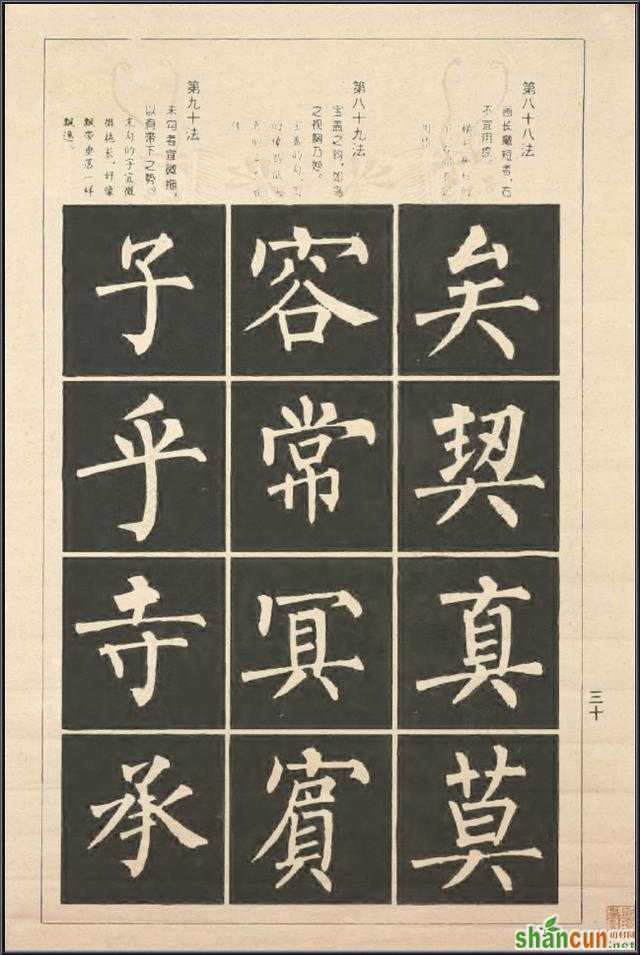 第八十八法
画长撇短者，右
不宜用捺
第八十九法
宝盖之钩，如鸟
之视胸乃妙。
第九十法
末勾者宜微拖，
以有带下之势。
末勾的字宜微
微拖长，好像
飘带垂落一样
飘逸。
矣契真莫
容常冥賓
子乎寺承
三十
shancun
山村网
.net